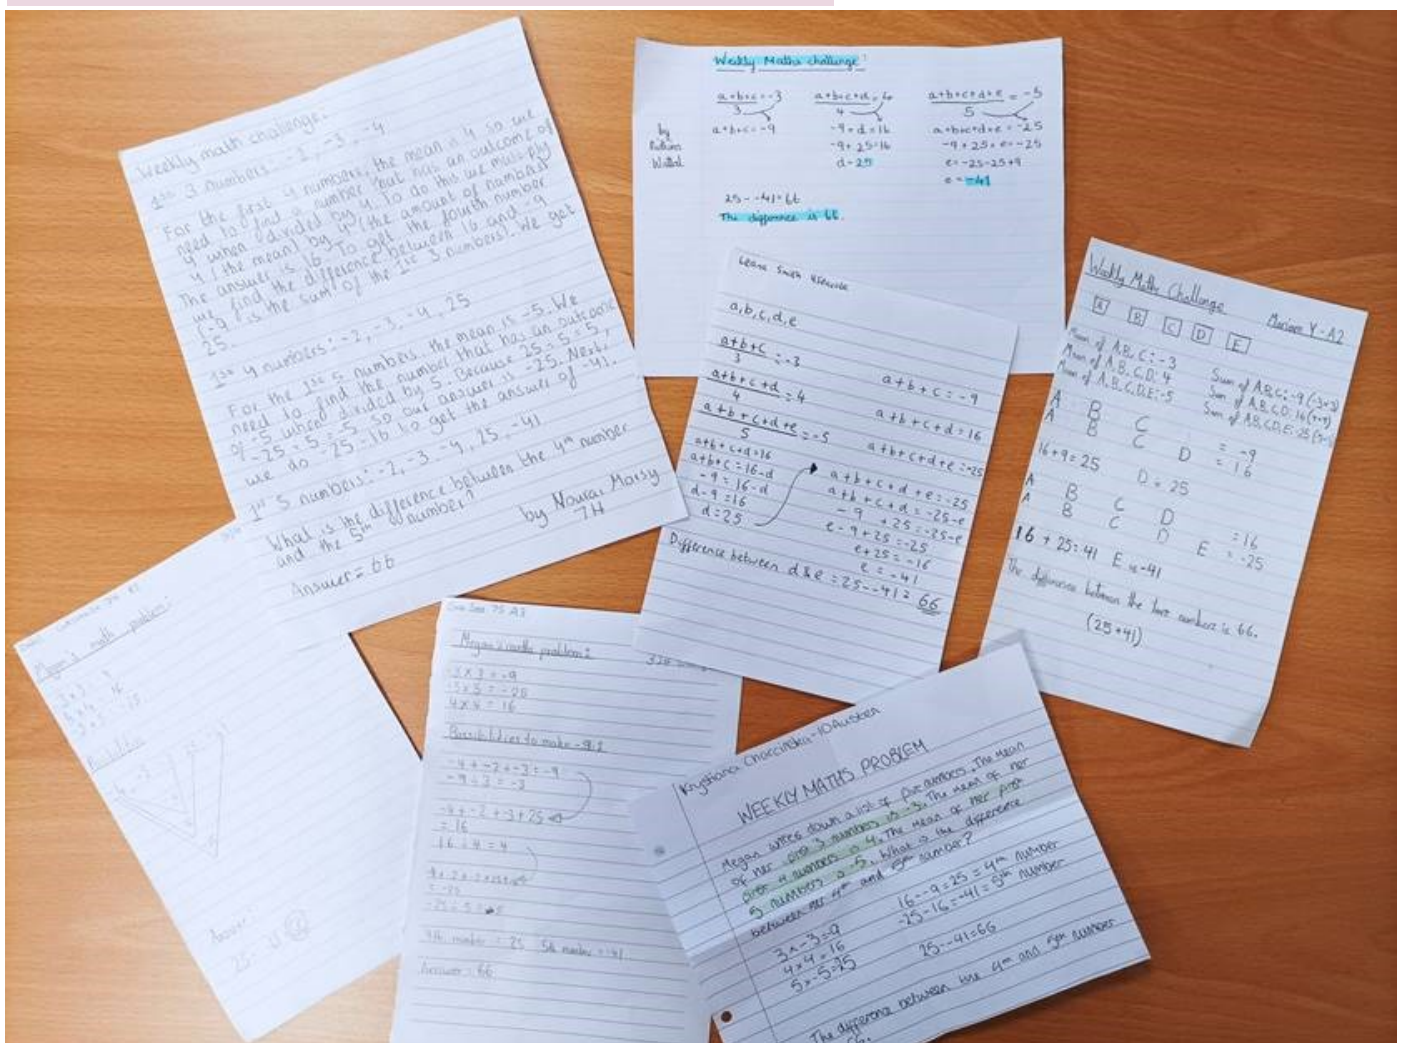 Weekly math challenge.
1st 3 numbers: -2, -3, -4
For the first 4 numbers, the mean is 4 so we
need to find a number that has an outcome of
4 when divided by 4. To do this we multiply
4 (the mean) by 4 (the amount of numbers)
The answer is 16. To get the fourth number
we find the difference between 16 and -9
(-9 is the sum of the 1st 3 numbers). We get
25.
1st 4 numbers: -2, -3, -4, 25
For the 1st 5 numbers, the mean is -5. We
need to find the number that has an outcome
of -5 when divided by 5. Because 25 ÷ 5 = 5,
-25 ÷ 5 = -5, so our answer is -25. Next,
we do -25 - 16 to get the answer of -41.
1st 5 numbers: -2, -3, -4, 25, -41
What is the difference between the 4th number
and the 5th number?
Answer = 66
by Nourai Morsy
7H
Weekly Maths challenge!
by
Wattal
a+b+c = -3
3
a+b+c = -9
a+b+c+d = 4
4
-9+d=16
-9+25=16
d=25
a+b+c+d+e = -5
5
a+b+c+d+e = -25
-9+25+e=-25
e=-25-25+9
e = -41
25--41=66
The difference is 66.
Leana Smith
a,b,c,d,e
a+b+c = -3
3
a+b+c+d = 4
4
a+b+c+d+e = -5
5
a+b+c+d=16
a+b+c=16-d
-9=16-d
d-9=16
d=25
a+b+c=-9
a+b+c+d=16
a+b+c+d+e=-25
a+b+c+d+e=-25
a+b+c+d=-25-e
-9+25=-25-e
e-9+25=-25
e+25=-16
e=-41
Difference between d & e = 25--41= 66
Weekly Math Challenge
Mariam Y-A2
A B C D E
Mean of A,B,C: -3
Mean of A,B,C,D: 4
Mean of A,B,C,D,E: -5
Sum of A,B,C: -9 (-3×3)
Sum of A,B,C,D: 16 (4×4)
Sum of A,B,C,D,E: -25
A B C = -9
A B C D = 16
16+9=25 D=25
A B C D = 16
A B C D E = -25
16 + 25=41 E is -41
The difference between the two numbers is 66.
(25+41)
Megan's math problem:
Answer
Megan's maths problem:
-3×3=-9
-5×5=-25
4×4=16
Possibilities to make -9:
-4+-2+-3=-9
-9÷3=-3
-4+-2+-3+25
=16
16÷4=4
=-25
4th number = 25 5th number = -41
Answer = 66
Krystiana Charcinska-10Austen
WEEKLY MATHS PROBLEM
Megan writes down a list of five numbers. The mean
of her first 3 numbers is -3. The mean of her
first 4 numbers is 4. The mean of her first
5 numbers is -5. What is the difference
between her 4th and 5th number?
3×-3=-9
4×4=16
5×-5=-25
16--9=25=4th number
-25-16=-41=5th number
25--41=66
The difference between the 4th and 5th number